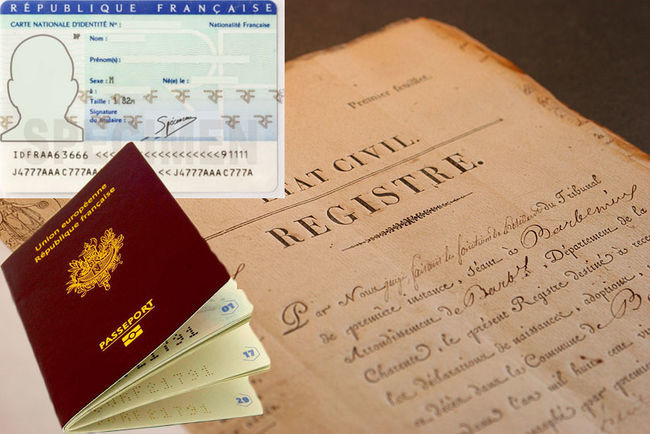 RÉPUBLIQUE FRANÇAISE
CARTE NATIONALE D'IDENTITÉ Nº : Nationalité Française
Nom :
Prénom(s) :
Sexe : M Né(e) le :
à :
Taille : 1,82m
Signature
du titulaire :
Spécimen
SPECIMEN
IDFRAA63666 <<<<<<<<<<<<<<<<<91111
J4777AAAC777A <<J4777AAAC777A
Union européenne
République française
PASSEPORT
01
17
29
Premier feuillet
ÉTAT CIVIL.
REGISTRE.
Par Nous faisant les fonctions de Président du Tribunal
de première instance, séant à Barbezieux
Arrondissement de Barb, Département de la
Charente, le présent Registre destiné à rece
les déclarations de naissances, adoptions,
à décès dans la Commune de Ba
l'an mil huit cent
par premier